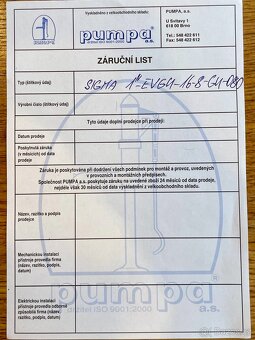 Vyskladněno z velkoobchodního skladu:
PUMPA, a.s.
U Svitavy 1
618 00 Brno
Tel.: 548 422 611
Fax: 548 422 612
pumpa a.s.
držitel ISO 9001:2000
ZÁRUČNÍ LIST
Typ (štítkový údaj) SIGMA 1"-EVGU-16-8-GU-080
Výrobní číslo (štítkový údaj)
Tyto údaje doplní prodejce při prodeji:
Datum prodeje
Poskytnutá záruka
(v měsících) od data
prodeje
Záruka je poskytována při dodržení všech podmínek pro montáž a provoz, uvedených
v provozních a montážních předpisech.
Společnost PUMPA a.s. poskytuje záruku na uvedené zboží 24 měsíců od data prodeje,
nejdéle však 30 měsíců od data vyskladnění z velkoobchodního skladu.
Název, razítko a podpis
prodejce
Mechanickou instalaci
přístroje provedla firma
(název, razítko, podpis,
datum)
Elektrickou instalaci
přístroje provedla odborně
způsobilá firma (název,
razítko, podpis, datum)
pumpa a.s.
držitel ISO 9001:2000